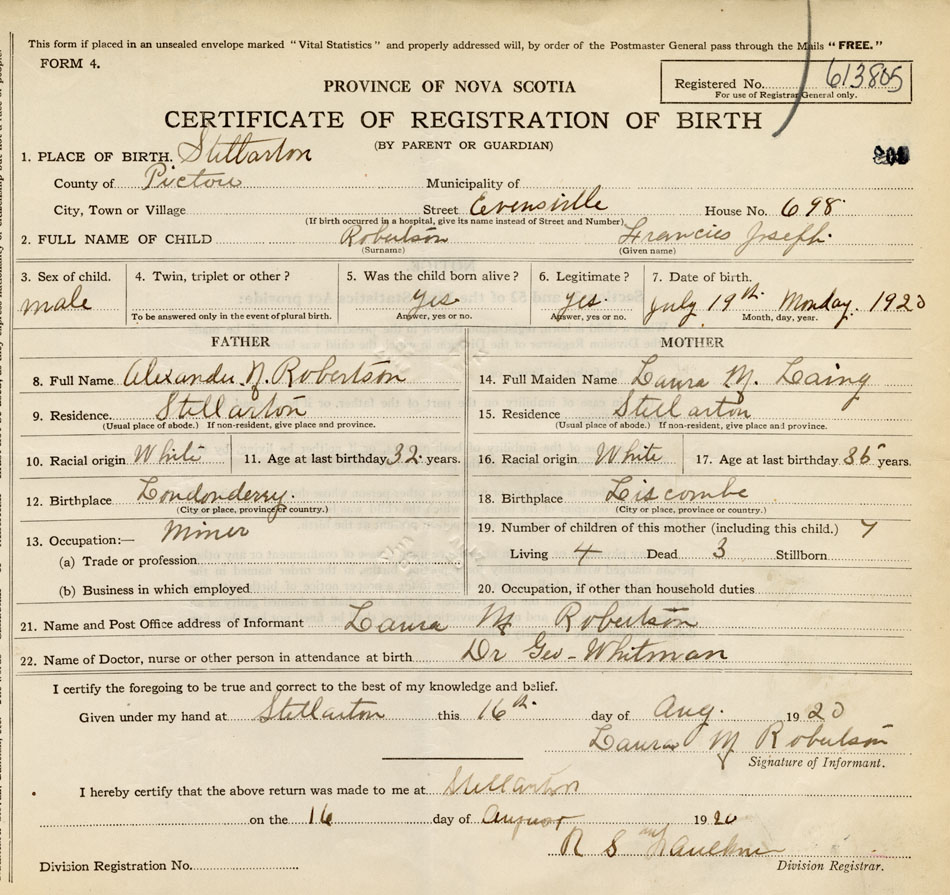 This form if placed in an unsealed envelope marked "Vital Statistics" and properly addressed will, by order of the Postmaster General pass through the Mails "FREE."
FORM 4.
Registered No. 613805
For use of Registrar General only.
PROVINCE OF NOVA SCOTIA
CERTIFICATE OF REGISTRATION OF BIRTH
(BY PARENT OR GUARDIAN)
1. PLACE OF BIRTH. Stellarton
County of Pictou Municipality of
City, Town or Village Street Evensville House No. 698
(If birth occurred in a hospital, give its name instead of Street and Number)
2. FULL NAME OF CHILD Robertson Francies Joseph.
(Surname) (Given name)
3. Sex of child. 4. Twin, triplet or other? 5. Was the child born alive? 6. Legitimate? 7. Date of birth.
male yes yes. July 19th. Monday. 1920
To be answered only in the event of plural birth. Answer, yes or no. Answer, yes or no. Month, day, year.
FATHER MOTHER
8. Full Name Alexander N. Robertson 14. Full Maiden Name Laura M. Laing
9. Residence. Stellarton 15. Residence Stellarton
(Usual place of abode.) If non-resident, give place and province. (Usual place of abode.) If non-resident, give place and province.
10. Racial origin White 11. Age at last birthday 32. years. 16. Racial origin White 17. Age at last birthday 36 years.
12. Birthplace Londonderry. 18. Birthplace Liscombe
(City or place, province or country.) (City or place, province or country.)
13. Occupation:— Miner 19. Number of children of this mother (including this child.) 7
(a) Trade or profession Living 4 Dead 3 Stillborn
(b) Business in which employed 20. Occupation, if other than household duties
21. Name and Post Office address of Informant Laura M Robertson
22. Name of Doctor, nurse or other person in attendance at birth Dr Geo-Whitman
I certify the foregoing to be true and correct to the best of my knowledge and belief.
Given under my hand at Stellarton this 16th. day of Aug. 1920
Laura M Robertson
Signature of Informant.
I hereby certify that the above return was made to me at Stellarton
on the 16 day of August 1920
R S
Division Registration No. Division Registrar.